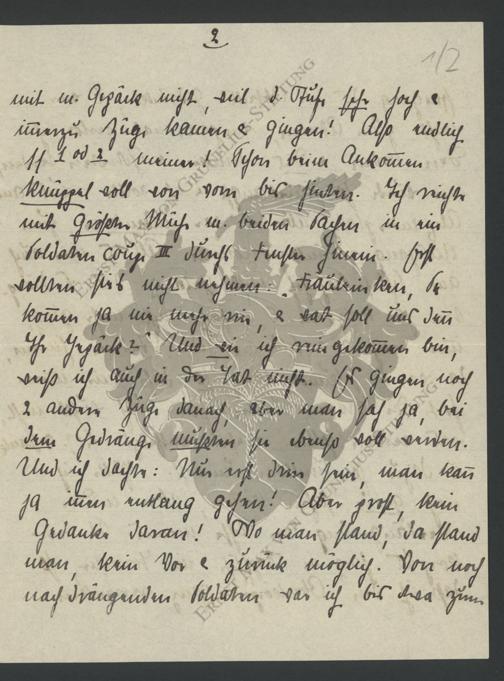 2
1/2
mit m. Gepäck nicht, weil d. Stufe sehr hoch &
immerzu Züge kamen & gingen! Also endlich
11 1 od 2 meiner! Schon beim Ankommen
knüppel voll von vorn bis hinten. Ich reichte
mit größter Mühe m. beiden Sachen in ein
Soldaten Coupé III durchs Fenster hinein. Erst
wollten sies nicht nehmen: "Fräuleinken, Se
kommen ja nie mehr rin, & wat soll uns denn
Ihr Jepäck?" Und wie ich reingekommen bin,
weiß ich auch in der Tat nicht. Es gingen noch
2 andere Züge danach, aber man sah ja, bei
dem Gedränge mußten sie ebenso voll werden.
Und ich dachte: Nur erst drin sein, man kann
ja innen entlang gehen! Aber prost, kein
Gedanke daran! Wo man stand, da stand
man, kein Vor & zurück möglich. Von noch
nachdrängenden Soldaten war ich bis etwa zum